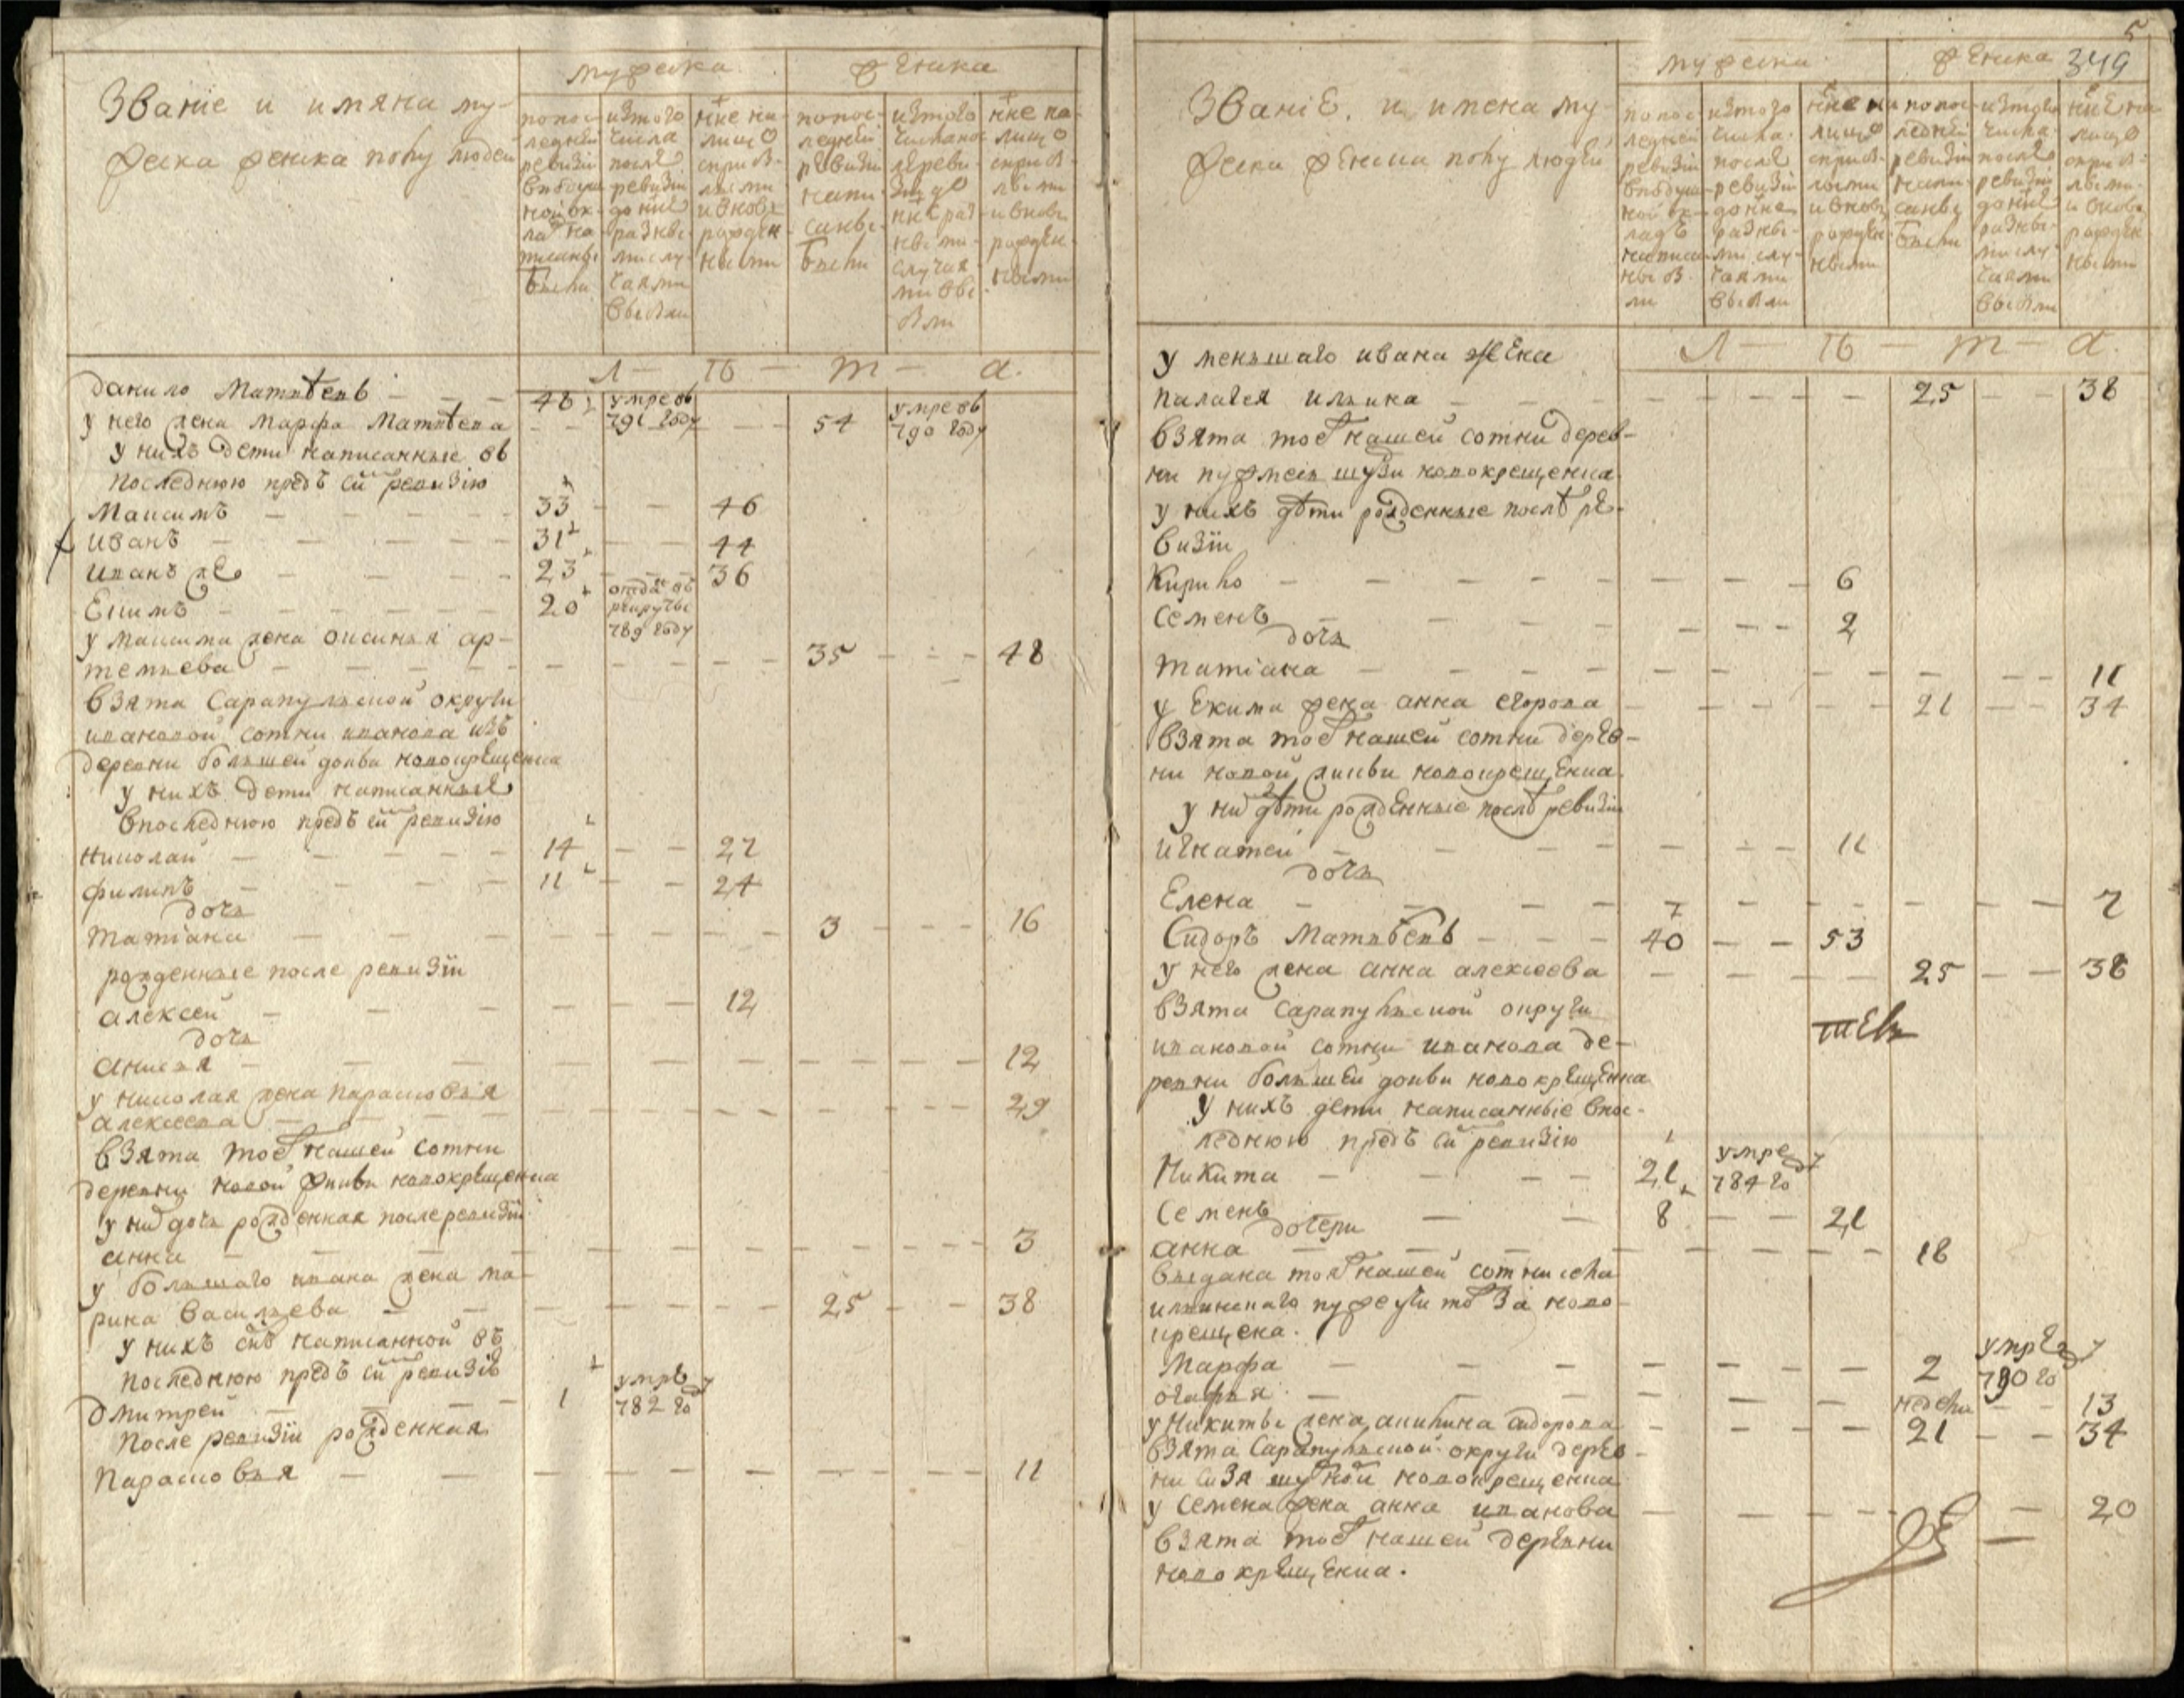 Званіе и имяна му-
жеска женска полу людеи
мужеска
женска
попос-
ледней
ревизіи
вподуш-
ной ок-
ладъ на-
писанных
было
изтого
числа
послѣ
ревизіи
до ннѣ
разны-
ми слу-
чаями
выбыли
ннѣ на-
лицо
сприб-
лыми
ивновь
рожден-
ными
попос-
ледней
ревизіи
напи-
санны
было
изтого
числа пос-
лѣ реви-
зіи до
ннѣ раз-
ными
случая-
ми вы-
были
ннѣ на-
лицо
сприб-
лыми
ивновь
рожден-
ными
Л — Ѣ — Т — А.
данило Матвѣевъ — — — 48 умре въ 791 году
у него жена марфа Матвѣева — — — — 54 умре въ 790 году
у нихъ дети написанные въ
последнюю предъ сей ревизію
Максимъ — — — 33 — — 46
иванъ — — — 31 — — 44
иванъ же — — — 23 — — 36
Екимъ — — — 20 отданъ въ рекруты 789 году
у максима жена оксинья ар-
темьева — — — 35 — — 48
взята Сарапульской округи
ивановой сотни иванова изъ
деревни большей докьи новокрещенка
у нихъ дети написанные
впоследнюю предъ сей ревизію
николай — — — 14 — — 27
филипъ — — — 11 — — 24
дочь
татіана — — — 3 — — — 16
рожденные после ревизіи
алексей — — — 12
дочь
анисья — — — 12
у николая жена парасковья
алексеева — — — 29
взята тоеж нашей сотни
деревни новой жикьи новокрещенка
у них дочь рожденная после ревизіи
анна — — — 3
у большаго ивана жена ма-
рина васильева — — — 25 — — 38
у нихъ снъ написанной въ
последнюю предъ сей ревизіею
дмитрей — — — 1 умре 782 году
после ревизіи рожденная
парасковья — — — 11
5
349
Званіе и имена му-
жеска женска полу людей
мужеска
женска
попос-
ледней
ревизіи
вподуш-
ной ок-
ладъ
написан-
ных бы-
ли
изтого
числа
послѣ
ревизіи
до ннѣ
разны-
ми слу-
чаями
выбыли
ннѣ на
лицо
сприб-
лыми
ивновь
рожден-
ными
попос-
ледней
ревизіи
напи-
санны
были
изтого
числа
послѣ
ревизіи
до ннѣ
разны-
ми слу-
чаями
выбыли
ннѣ на
лицо
сприб-
лыми
и вновь
рожден-
ными
Л — Ѣ — Т — А.
у меньшаго ивана жена
палагея ильина — — — 25 — — 38
взята тоеж нашей сотни дерев-
ни новокрещенка
у нихъ дѣти рожденные послѣ ре-
визіи
Кирило — — — 6
семенъ — — — 2
дочь
татіана — — — 11
у Екима жена анна егорова — — — 21 — — 34
взята тоеж нашей сотни дерев-
ни новой жикьи новокрещенка
у них дѣти рожденные послѣ ревизіи
игнатей — — — 11
дочь
Елена — — — 7
Сидоръ Матвѣевъ — — — 40 — — 53
у него жена анна алексеева — — — 25 — — 38
взята сарапульской округи
ивановой сотни иванова де-
ревни большей докьи новокрещенка
у нихъ дети написанные впос-
леднюю предъ сей ревизію
Никита — — — 21 умре 784 году
Семенъ — — — 8 — — 21
дочери
анна — — — 18
выдана тояж нашей сотни села
ильинскаго за ново-
крещена.
Марфа — — — 2 умре 790 году
огафья — — — недели — — 13
у Никиты жена акилина сидорова — — — 21 — — 34
взята Сарапульской округи дерев-
ни новокрещенка
у семена жена анна иванова — — — 20
взята тоеж нашей деревни
новокрещенка.